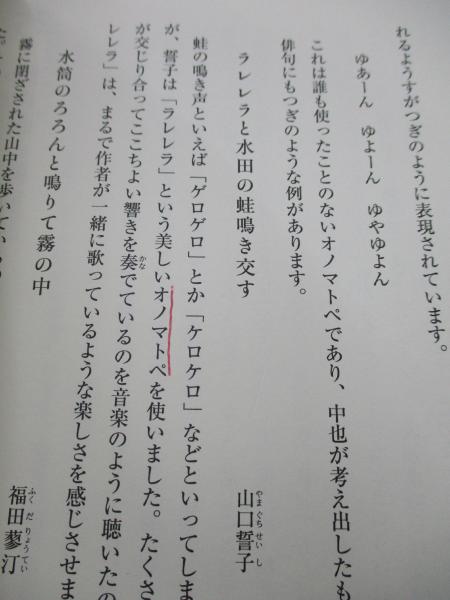 れるようすがつぎのように表現されています。
ゆあーん　ゆよーん　ゆやゆよん
これは誰も使ったことのないオノマトペであり、中也が考え出したも
俳句にもつぎのような例があります。
ラレレラと水田の蛙鳴き交す　山口誓子
やまぐちせいし
蛙の鳴き声といえば「ゲロゲロ」とか「ケロケロ」などといってしま
が、誓子は「ラレレラ」という美しいオノマトペを使いました。たくさ
が交じり合ってここちよい響きを奏でているのを音楽のように聴いたの
かな
レレラ」は、まるで作者が一緒に歌っているような楽しさを感じさせま
水筒のろろんと鳴りて霧の中　福田蓼汀
ふくだりょうてい
霧に閉ざされた山中を歩いてい